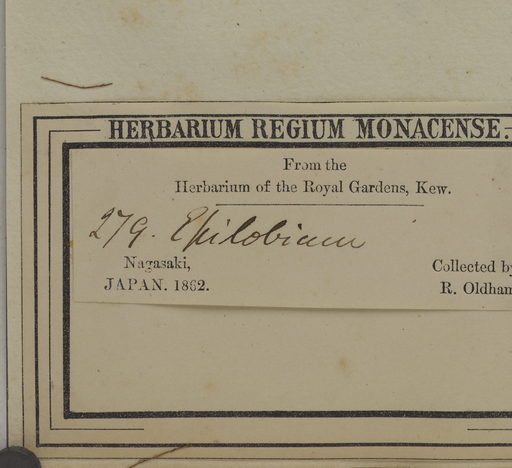 HERBARIUM REGIUM MONACENSE.
From the
Herbarium of the Royal Gardens, Kew.
279. Epilobium
Nagasaki,
JAPAN. 1862.
Collected by
R. Oldham